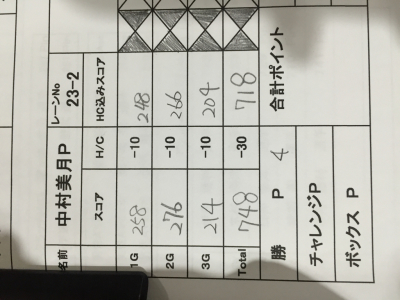 名前 中村美月P レーンNo 23-2
スコア H/C HC込みスコア
1G 258 -10 248
2G 276 -10 266
3G 214 -10 204
Total 748 -30 718
勝 P 4 合計ポイント
チャレンジP
ボックス P